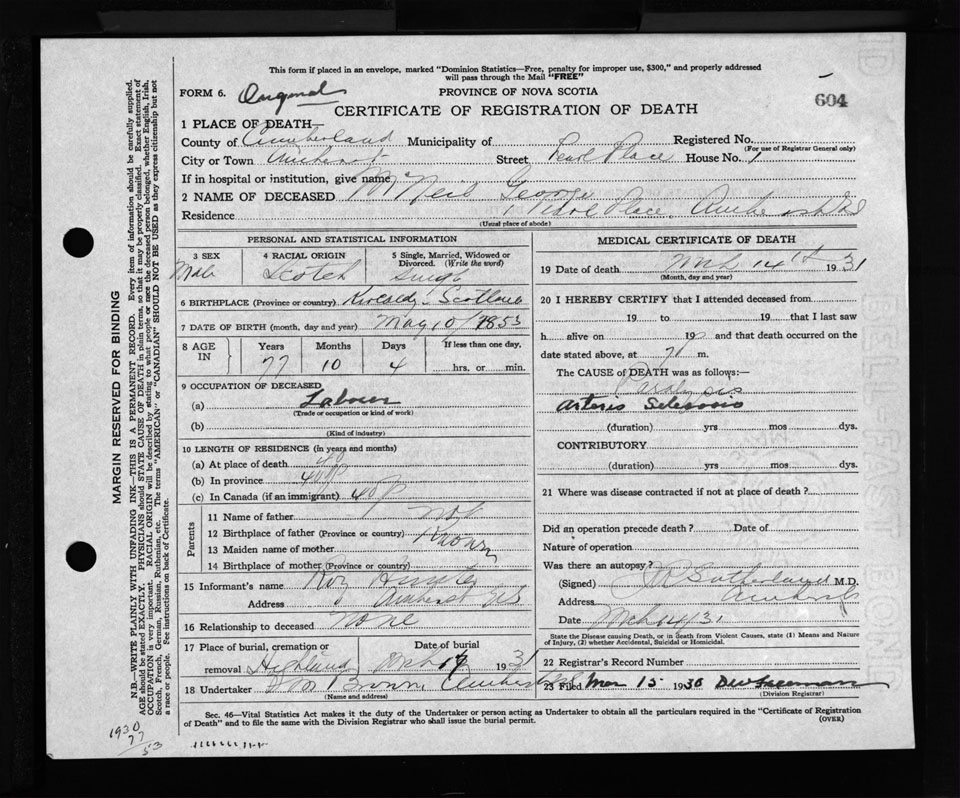 This form if placed in an envelope, marked "Dominion Statistics—Free, penalty for improper use, $300," and properly addressed
will pass through the Mail "FREE"
FORM 6. Original
PROVINCE OF NOVA SCOTIA
604
CERTIFICATE OF REGISTRATION OF DEATH
1 PLACE OF DEATH—
County of Cumberland Municipality of Registered No.
(For use of Registrar General only)
City or Town Amherst Street Pearl Place House No. 1
If in hospital or institution, give name
2 NAME OF DECEASED McNeil George
Residence 1 Pearl Place Amherst N.S
(Usual place of abode)
PERSONAL AND STATISTICAL INFORMATION
3 SEX 4 RACIAL ORIGIN 5 Single, Married, Widowed or
Divorced. (Write the word)
Male Scotch Single
6 BIRTHPLACE (Province or country) Scotland
7 DATE OF BIRTH (month, day and year) May 10/1853
8 AGE IN Years Months Days If less than one day,
77 10 4 hrs. or min.
9 OCCUPATION OF DECEASED
(a) Laborer
(Trade or occupation or kind of work)
(b)
(Kind of industry)
10 LENGTH OF RESIDENCE (in years and months)
(a) At place of death 40
(b) In province 40
(c) In Canada (if an immigrant) 40
Parents
11 Name of father Not
12 Birthplace of father (Province or country) Known
13 Maiden name of mother
14 Birthplace of mother (Province or country)
15 Informant's name Roy Hunter
Address Amherst NS
16 Relationship to deceased None
17 Place of burial, cremation or Date of burial
removal Highland Mch 17 1931
18 Undertaker Brown Amherst NS
(Name and address)
MEDICAL CERTIFICATE OF DEATH
19 Date of death Mch 14th 1931
(Month, day and year)
20 I HEREBY CERTIFY that I attended deceased from
19 to 19 that I last saw
h alive on 19 and that death occurred on the
date stated above, at 7 m.
The CAUSE of DEATH was as follows:—
Paralysis
Arterio Sclerosis
(duration) yrs mos dys.
CONTRIBUTORY
(duration) yrs mos dys.
21 Where was disease contracted if not at place of death?
Did an operation precede death? Date of
Nature of operation
Was there an autopsy?
(Signed) Sutherland M.D.
Address Amherst
Date Mch 14/31
State the Disease causing Death, or in death from Violent Causes, state (1) Means and Nature
of Injury, (2) whether Accidental, Suicidal or Homicidal.
22 Registrar's Record Number
23 Filed Mar 15 1930 Freeman
(Division Registrar)
Sec. 46—Vital Statistics Act makes it the duty of the Undertaker or person acting as Undertaker to obtain all the particulars required in the "Certificate of Registration
of Death" and to file the same with the Division Registrar who shall issue the burial permit.
(OVER)
MARGIN RESERVED FOR BINDING
N.B.—WRITE PLAINLY WITH UNFADING INK—THIS IS A PERMANENT RECORD. Every item of information should be carefully supplied.
AGE should be stated EXACTLY. PHYSICIANS should STATE CAUSE OF DEATH in plain terms, so that it may be properly classified. Exact statement of
OCCUPATION is very important. RACIAL ORIGIN will be described by stating to what people or race the deceased person belonged, whether English, Irish,
Scotch, French, German, Russian, Ruthenian, etc. The terms "AMERICAN" or "CANADIAN" SHOULD NOT BE USED as they express citizenship but not
a race or people. See instructions on back of Certificate.
1930
77
53